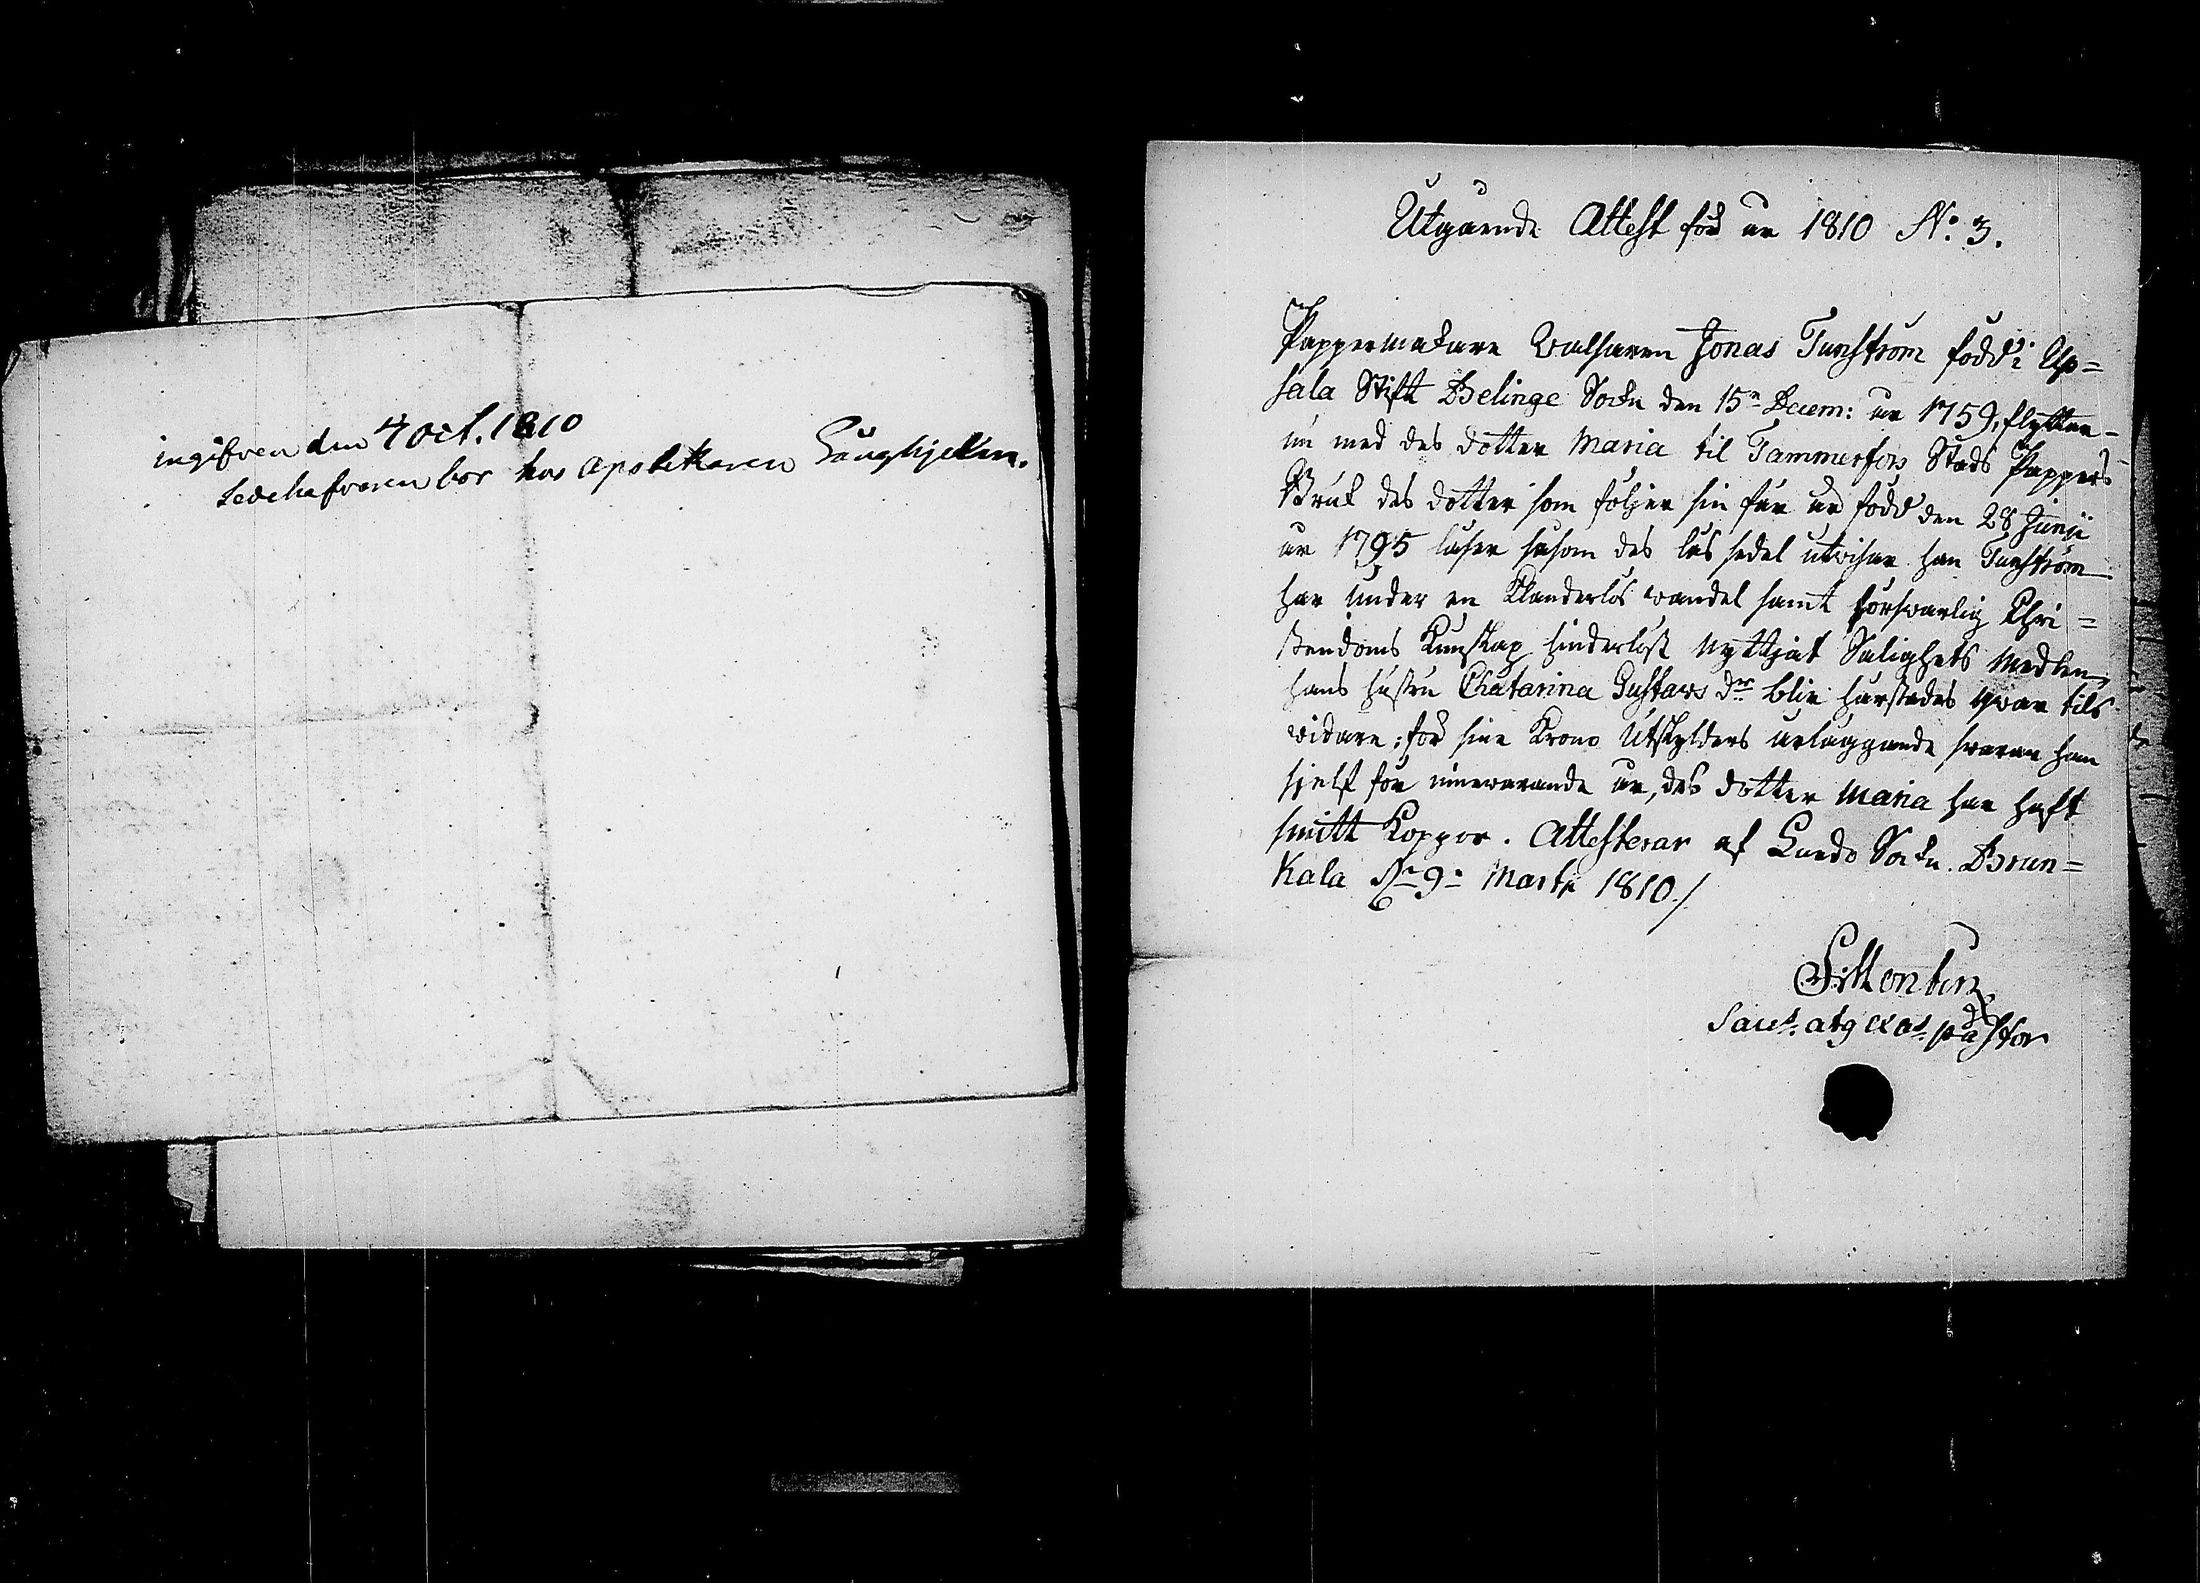 ingifven den 4 Oct. 1810
Sedelhafvaren bor hos Apothekaren
Utgående Attest för år 1810 No. 3.
Pappermakare Jonas Tunström född i Up=
sala Stift Belinge Sockn den 15n Decem: år 1759, flyttar
nu med des dotter Maria til Tammerfors Stads Pappers
Bruk des dotter som följer sin far är född den 28 Junii
år 1795 läser såsom des läs sedel utvisar han Tunström
har under en Klanderlös vandel samt försvarlig Chri=
stendoms Kunskap hinderlöst nyttjat Salighets Medlen
hans hustru Chatarina Gustavs dr blir härstädes qvar tils
vidare; för sine Krono Utskylders ärläggande svarar han
sjelf för innevarande år, des dotter Maria har haft
smitt Koppor. Attesterar af Sockn. Brun=
kala 9 Marti 1810./
Pastor